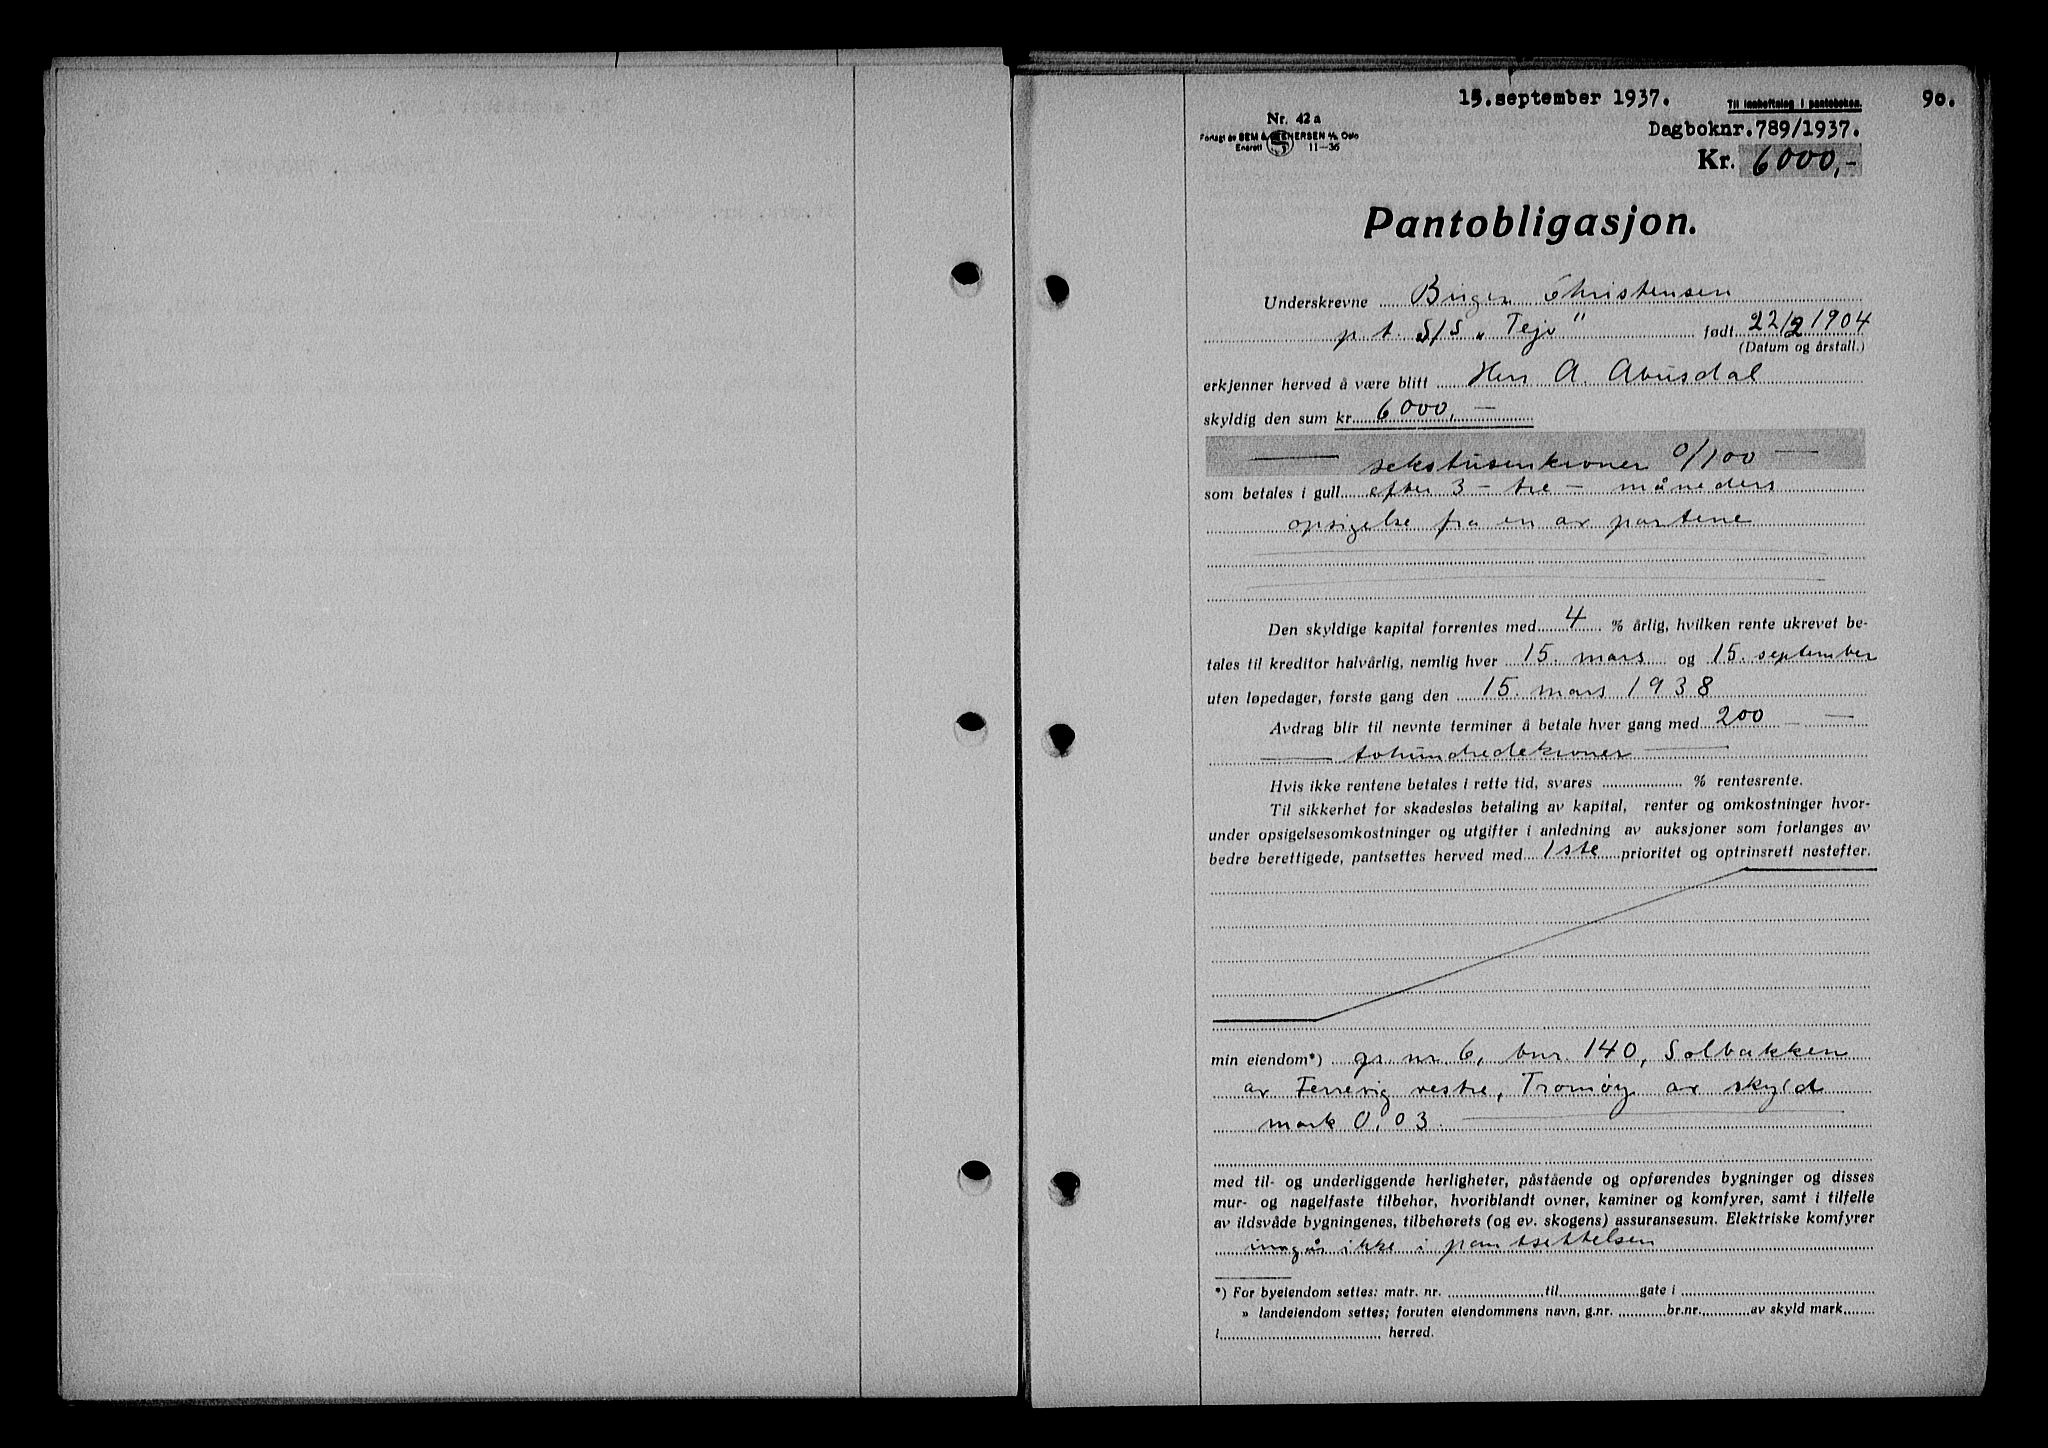 15.september 1937.
Til innheftning i panteboken.
90.
Nr. 42 a
Dagboknr. 789/1937.
Forlagt av SEM & STENERSEN A/S Oslo
Enerett 11—36
Kr. 6000,-
Pantobligasjon.
Underskrevne Birger Christensen
p t. S/S „Tejo" født 22/2 1904
(Datum og årstall.)
erkjenner herved å være blitt Herr A. Abusdal
skyldig den sum kr. 6000,—
— sekstusenkroner 0/100 —
som betales i gull efter 3 - tre - måneders
opsigelse fra en av partene
Den skyldige kapital forrentes med 4 % årlig, hvilken rente ukrevet be-
tales til kreditor halvårlig, nemlig hver 15. mars og 15. september
uten løpedager, første gang den 15. mars 1938
Avdrag blir til nevnte terminer å betale hver gang med 200 — —
— tohundredekroner —
Hvis ikke rentene betales i rette tid, svares % rentesrente.
Til sikkerhet for skadesløs betaling av kapital, renter og omkostninger hvor-
under opsigelsesomkostninger og utgifter i anledning av auksjoner som forlanges av
bedre berettigede, pantsettes herved med 1ste prioritet og optrinsrett nestefter.
min eiendom*) gr nr 6, bnr. 140, Solbakken
av Færvig vestre, Tromøy av skyld
mark 0,03.
med til- og underliggende herligheter, påstående og opførendes bygninger og disses
mur- og nagelfaste tilbehør, hvoriblandt ovner, kaminer og komfyrer, samt i tilfelle
av ildsvåde bygningenes, tilbehørets (og ev. skogens) assuransesum. Elektriske komfyrer
inngår ikke i pantsettelsen
*) For byeiendom settes: matr. nr. til gate i
» landeiendom settes; foruten eiendommens navn, g.nr. br.nr. av skyld mark
i herred.